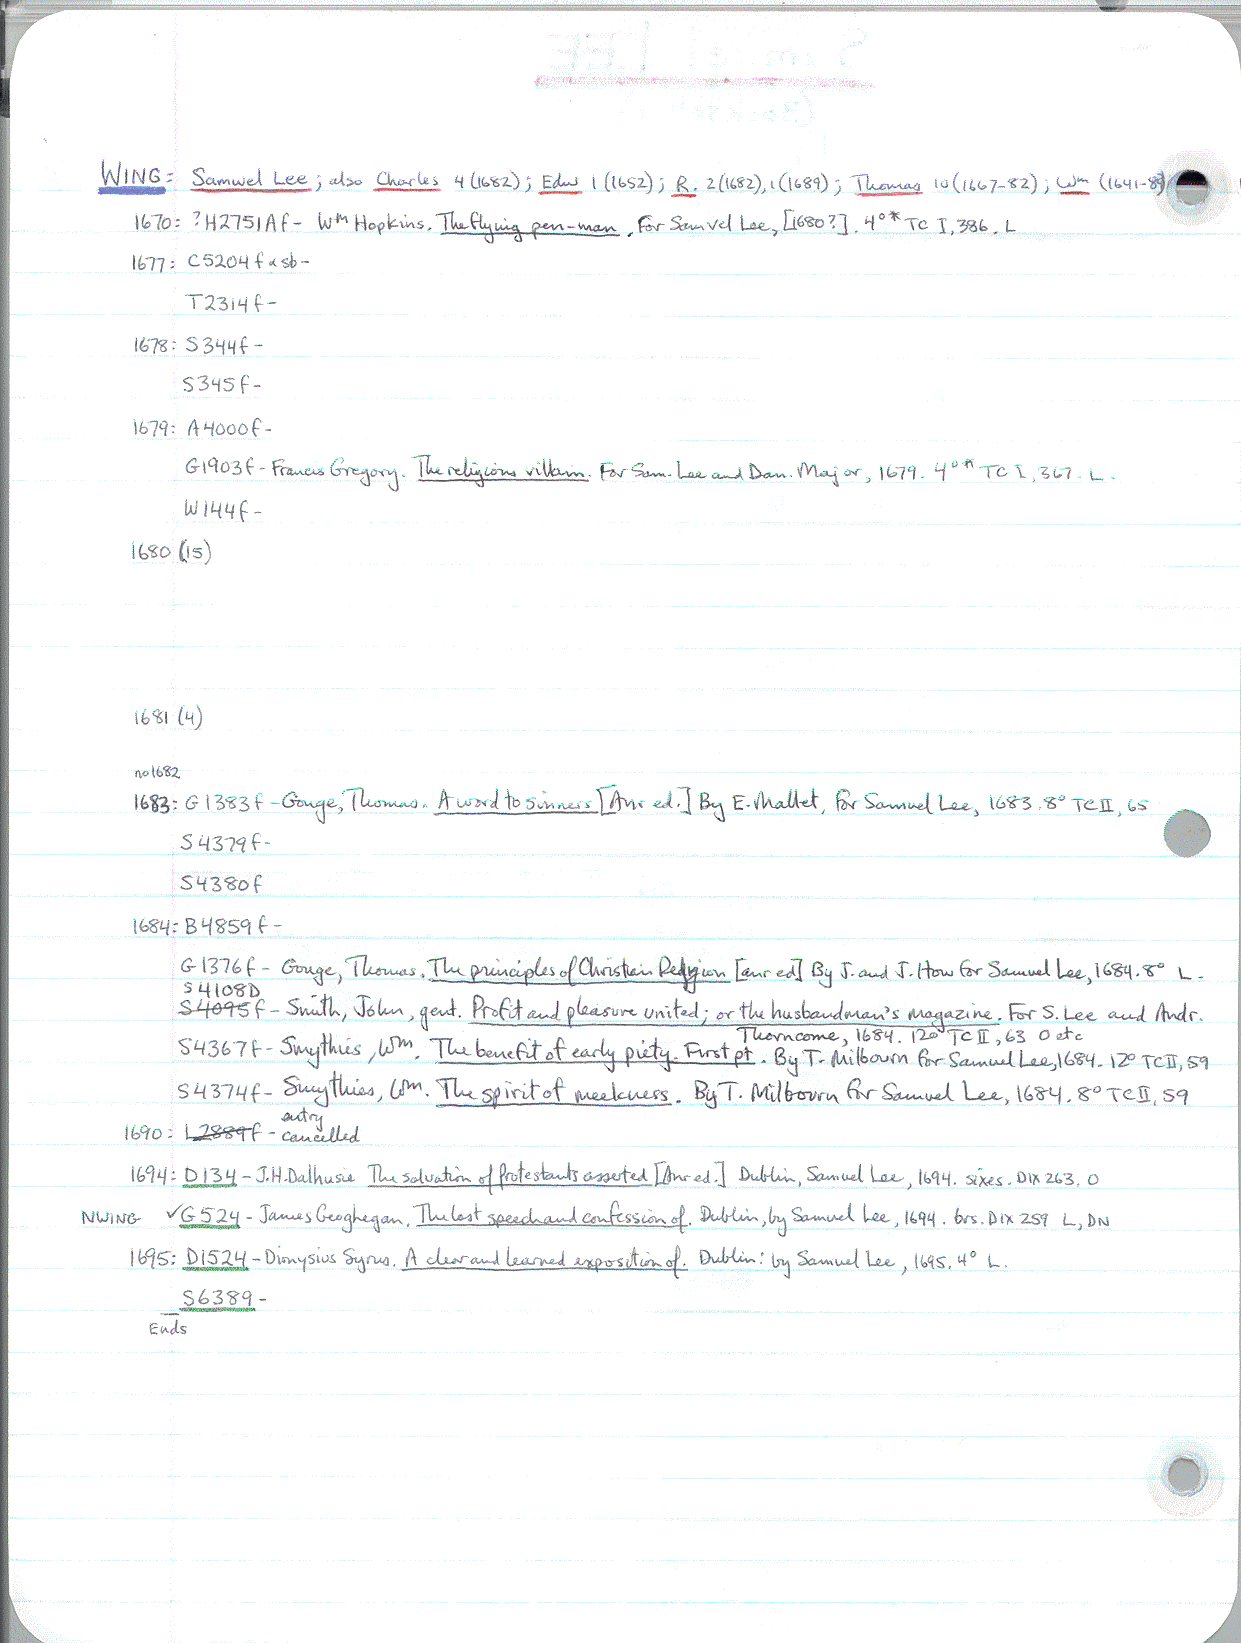 WING: Samuel Lee; also Charles 4 (1682); Edw 1 (1652); R. 2(1682), 1(1689); Thomas 10 (1667-82); Wm (1641-8
1670: ?H2751Af- Wm Hopkins. The flying pen-man. For Samvel Lee, [1680?]. 4°* TC I, 386. L
1677: C5204f & sb-
T2314f-
1678: S344f-
S345f-
1679: A4000f-
G1903f- Francis Gregory. The religious villain. For Sam. Lee and Dan. Major, 1679. 4°* TC I, 367. L.
W144f-
1680 (15)
1681 (4)
no 1682
1683: G1383f- Gouge, Thomas. A word to sinners [Anr ed.] By E. Mallet, for Samuel Lee, 1683. 8° TC II, 65
S4379f-
S4380f
1684: B4859f-
G1376f- Gouge, Thomas. The principles of Christian Religion [anr ed] By J. and J. How for Samuel Lee, 1684. 8° L.
S4108D
S4095f- Smith, John, gent. Profit and pleasure united; or the husbandman's magazine. For S. Lee and Andr.
Thorncome, 1684. 12° TC II, 63 O etc
S4367f- Smythies, Wm. The benefit of early piety. First pt. By T. Milbourn for Samuel Lee, 1684. 12° TC II, 59
S4374f- Smythies, Wm. The spirit of meekness. By T. Milbourn for Samuel Lee, 1684. 8° TC II, 59
entry
1690: L2889f- cancelled
1694: D134- J.H. Dalhusie The salvation of Protestants asserted [Anr ed.] Dublin, Samuel Lee, 1694. sixes. Dix 263. O
NWING ✓G524- James Geoghegan. The last speech and confession of. Dublin, by Samuel Lee, 1694. brs. Dix 259 L, DN
1695: D1524- Dionysius Syrus. A clear and learned exposition of. Dublin: by Samuel Lee, 1695. 4° L.
S6389-
Ends